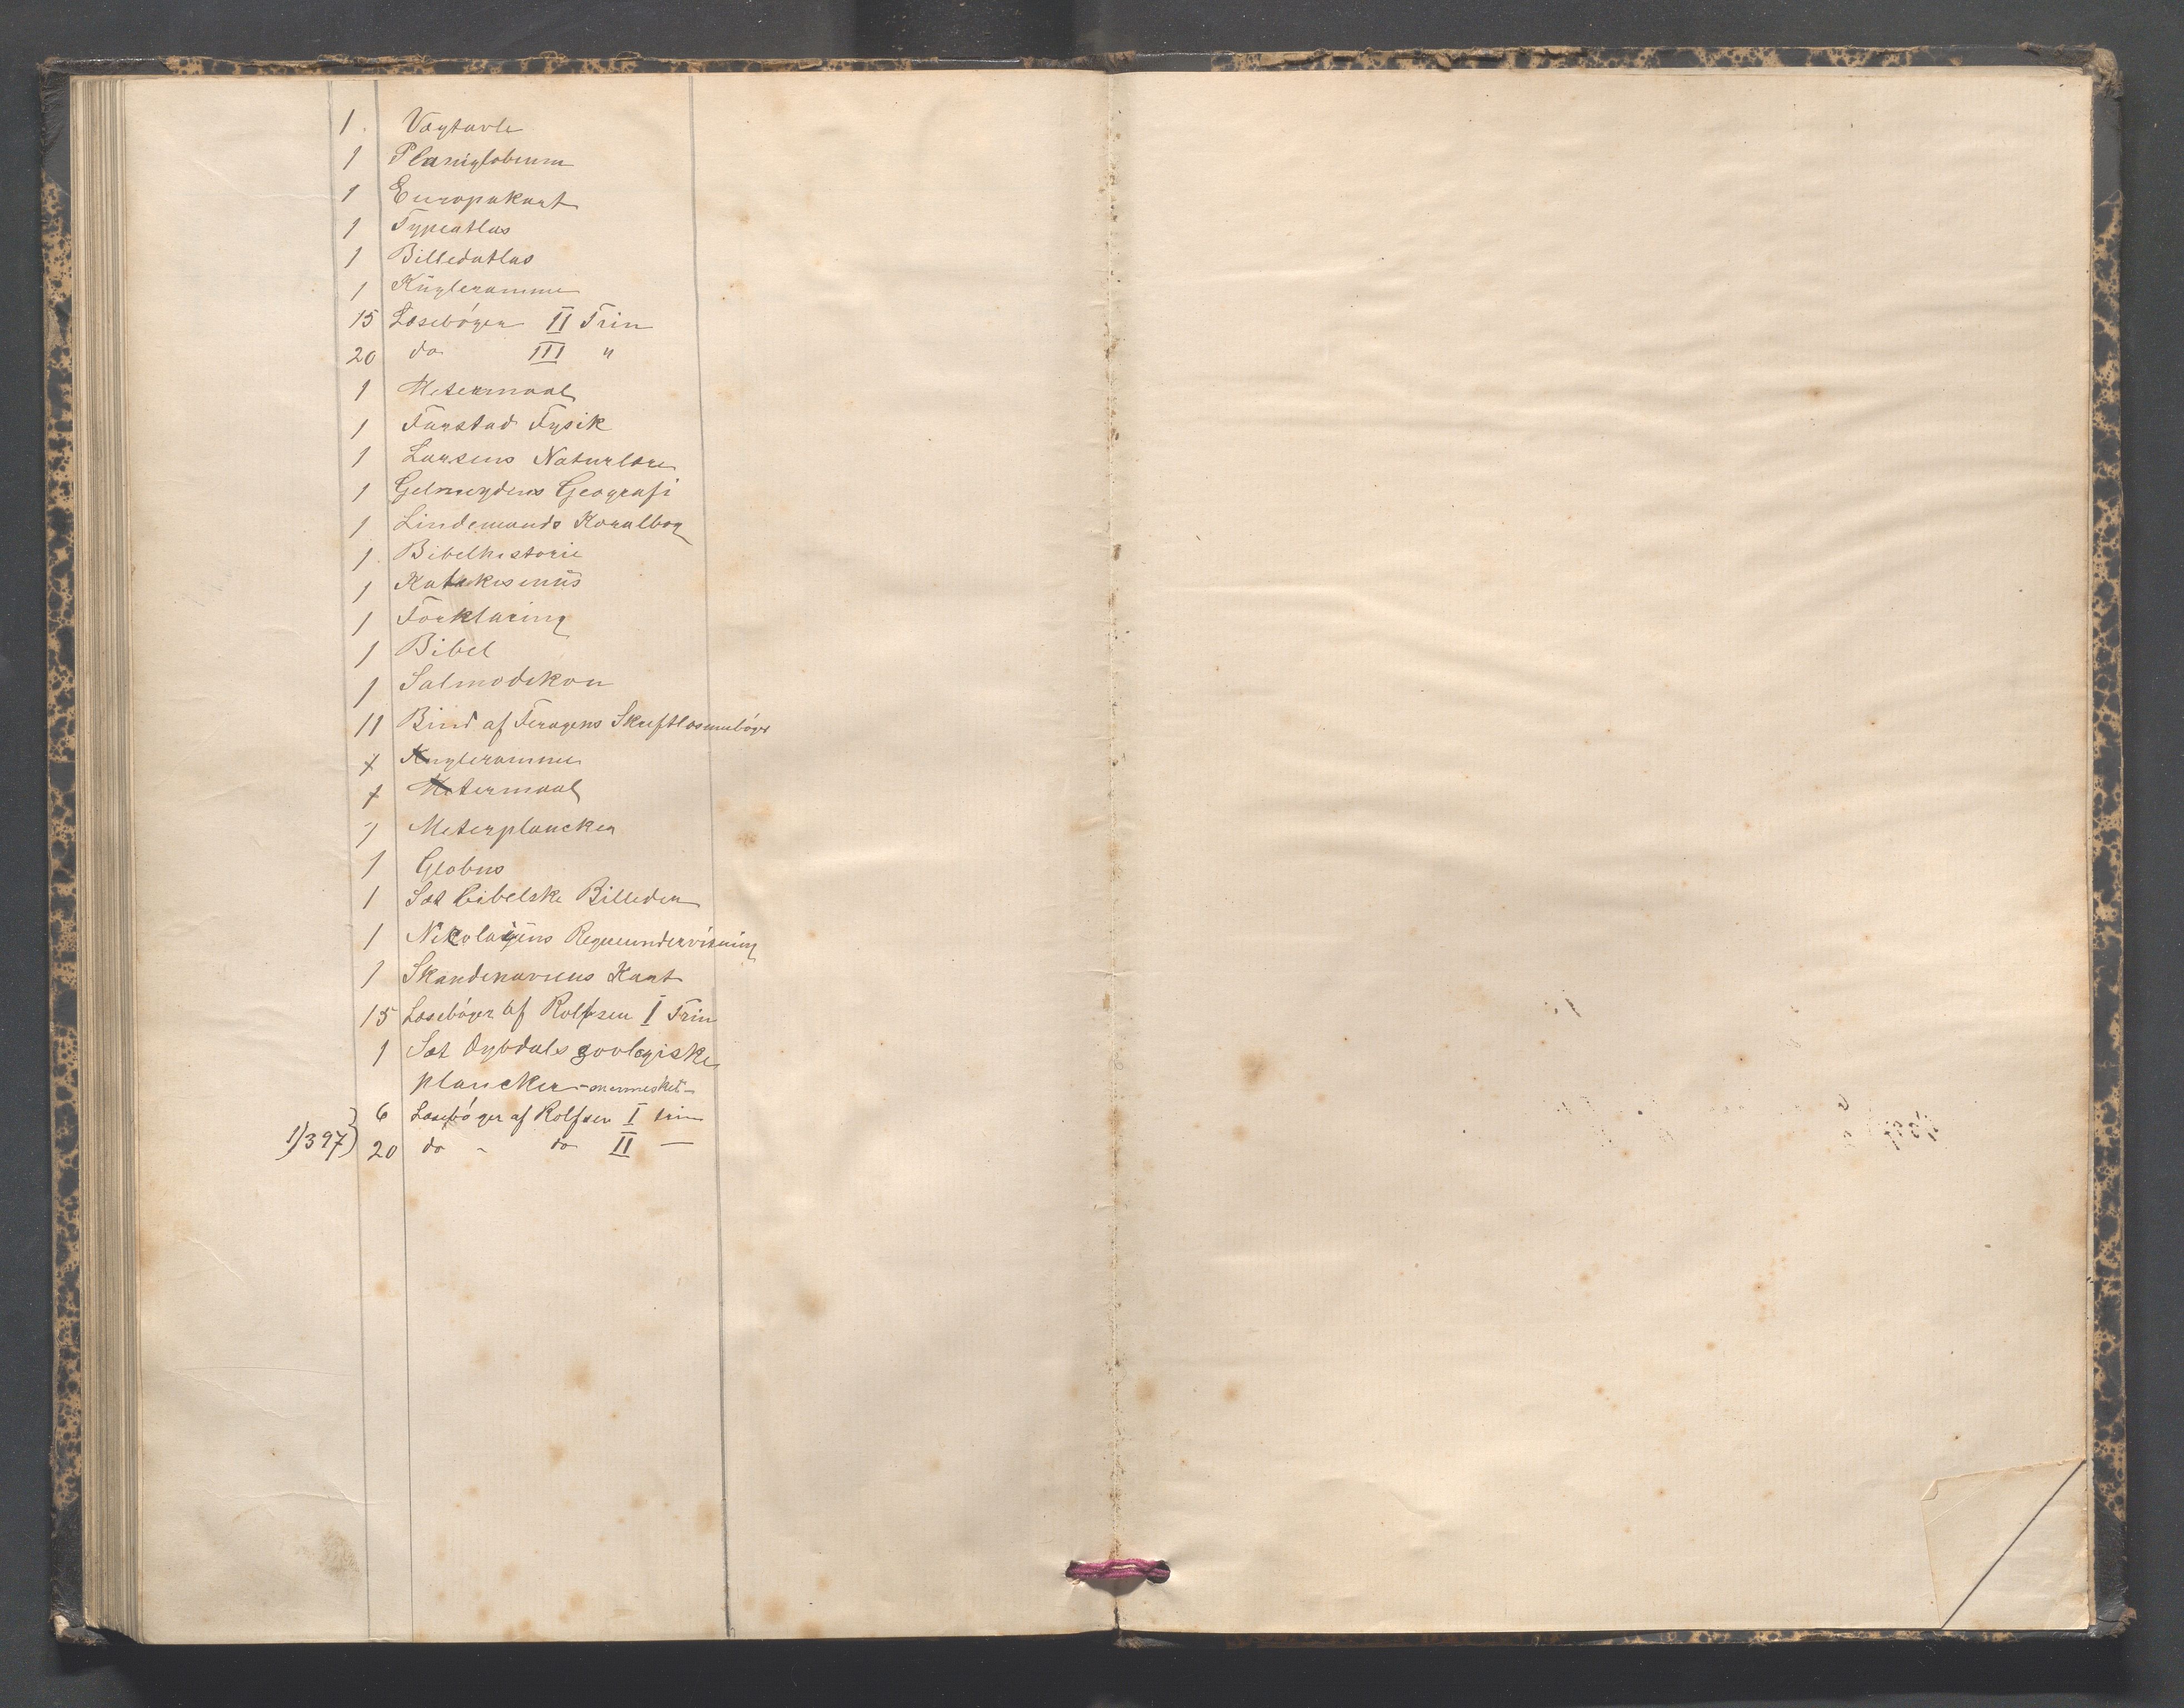 1. Vægtavle
1 Planiglobium
1 Europakart
1 Typeatlas
1 Billedatlas
1 Kugleramme
15 Læsebøger II Trin
20 do III "
1 Metermaal
1 Farstad Fysik
1 Larsens Naturlære
1 Gelmeydens Geografi
1 Lindemands Koralbog
1. Bibelhistorie
1 Katekismus
1 Forklaring
1 Bibel
1 Salmodikon
11 Bind af Feragens Skriftlæsnebøger
1 Kugleramme
1 Metermaal
1 Meterplancher
1 Globus
1 Sæt bibelske Billeder
1 Nikolaisens Regneundervisning
1 Skandinaviens Kart
15 Læsebøger af Rolfsen I Trin
1 Sæt Dybdals zoologiske
plancker - mennesket -
6 Læsebøger af Rolfsen I trin
1/3 97) 20 do - do II —